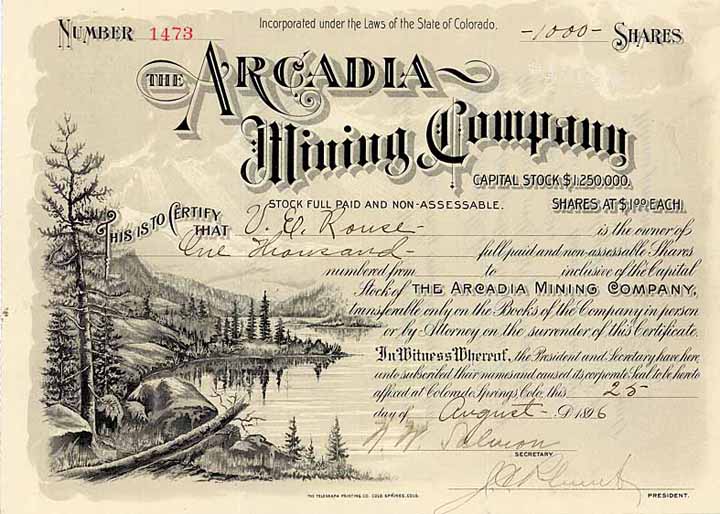 Incorporated under the Laws of the State of Colorado.
NUMBER 1473
-1000- SHARES
THE ARCADIA
Mining Company
CAPITAL STOCK $1,250,000.
STOCK FULL PAID AND NON-ASSESSABLE. SHARES AT $1.00 EACH.
THIS IS TO CERTIFY THAT V. E. Rouse is the owner of
One Thousand full paid and non-assessable Shares
numbered from to inclusive of the Capital
Stock of THE ARCADIA MINING COMPANY,
transferable only on the Books of the Company in person
or by Attorney on the surrender of this Certificate.
In Witness Whereof, the President and Secretary have here
unto subscribed their names and caused its corporate Seal to be hereto
affixed at Colorado Springs, Colo, this 25
day of August D 1896
Salmon
SECRETARY.
PRESIDENT.
THE TELEGRAPH PRINTING CO. COLO. SPRINGS, COLO.